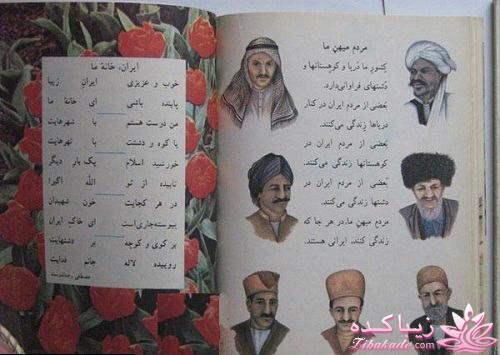 مردم میهنِ ما
کشورِ ما دریا و کوهستانها و
دشتهای فراوانی دارد.
بعضی از مردم ایران در کنار
دریاها زندگی می‌کنند.
بعضی از مردم ایران در
کوهستانها زندگی می‌کنند.
بعضی از مردم ایران در
دشتها زندگی می‌کنند.
مردم میهنِ ما، در هر جا که
زندگی کنند، ایرانی هستند.
ایران، خانهٔ ما
خوب و عزیزی ایرانِ زیبا
پاینده باشی ای خانهٔ ما
من دوست هستم با شهرهایت
با کوه و دشتت با نهرهایت
خورشیدِ اسلام یک بارِ دیگر
تابیده از تو الله اکبرا
در هر کجایت خونِ شهیدان
پیوسته جاری‌است ای خاکِ ایران
بر کوی و کوچه بر دشتهایت
روییده لاله جانم فدایت
مصطفی رحماندوست
زیباکده
Zibakade.com